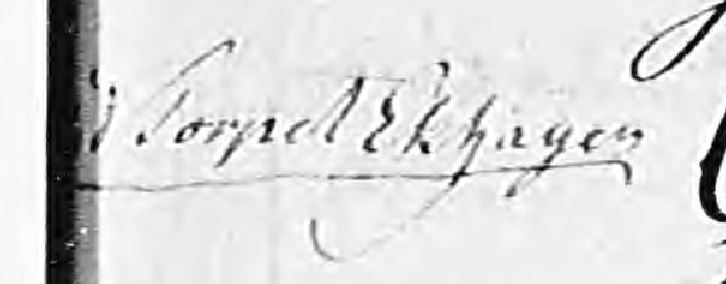 Torpet Ekhagen